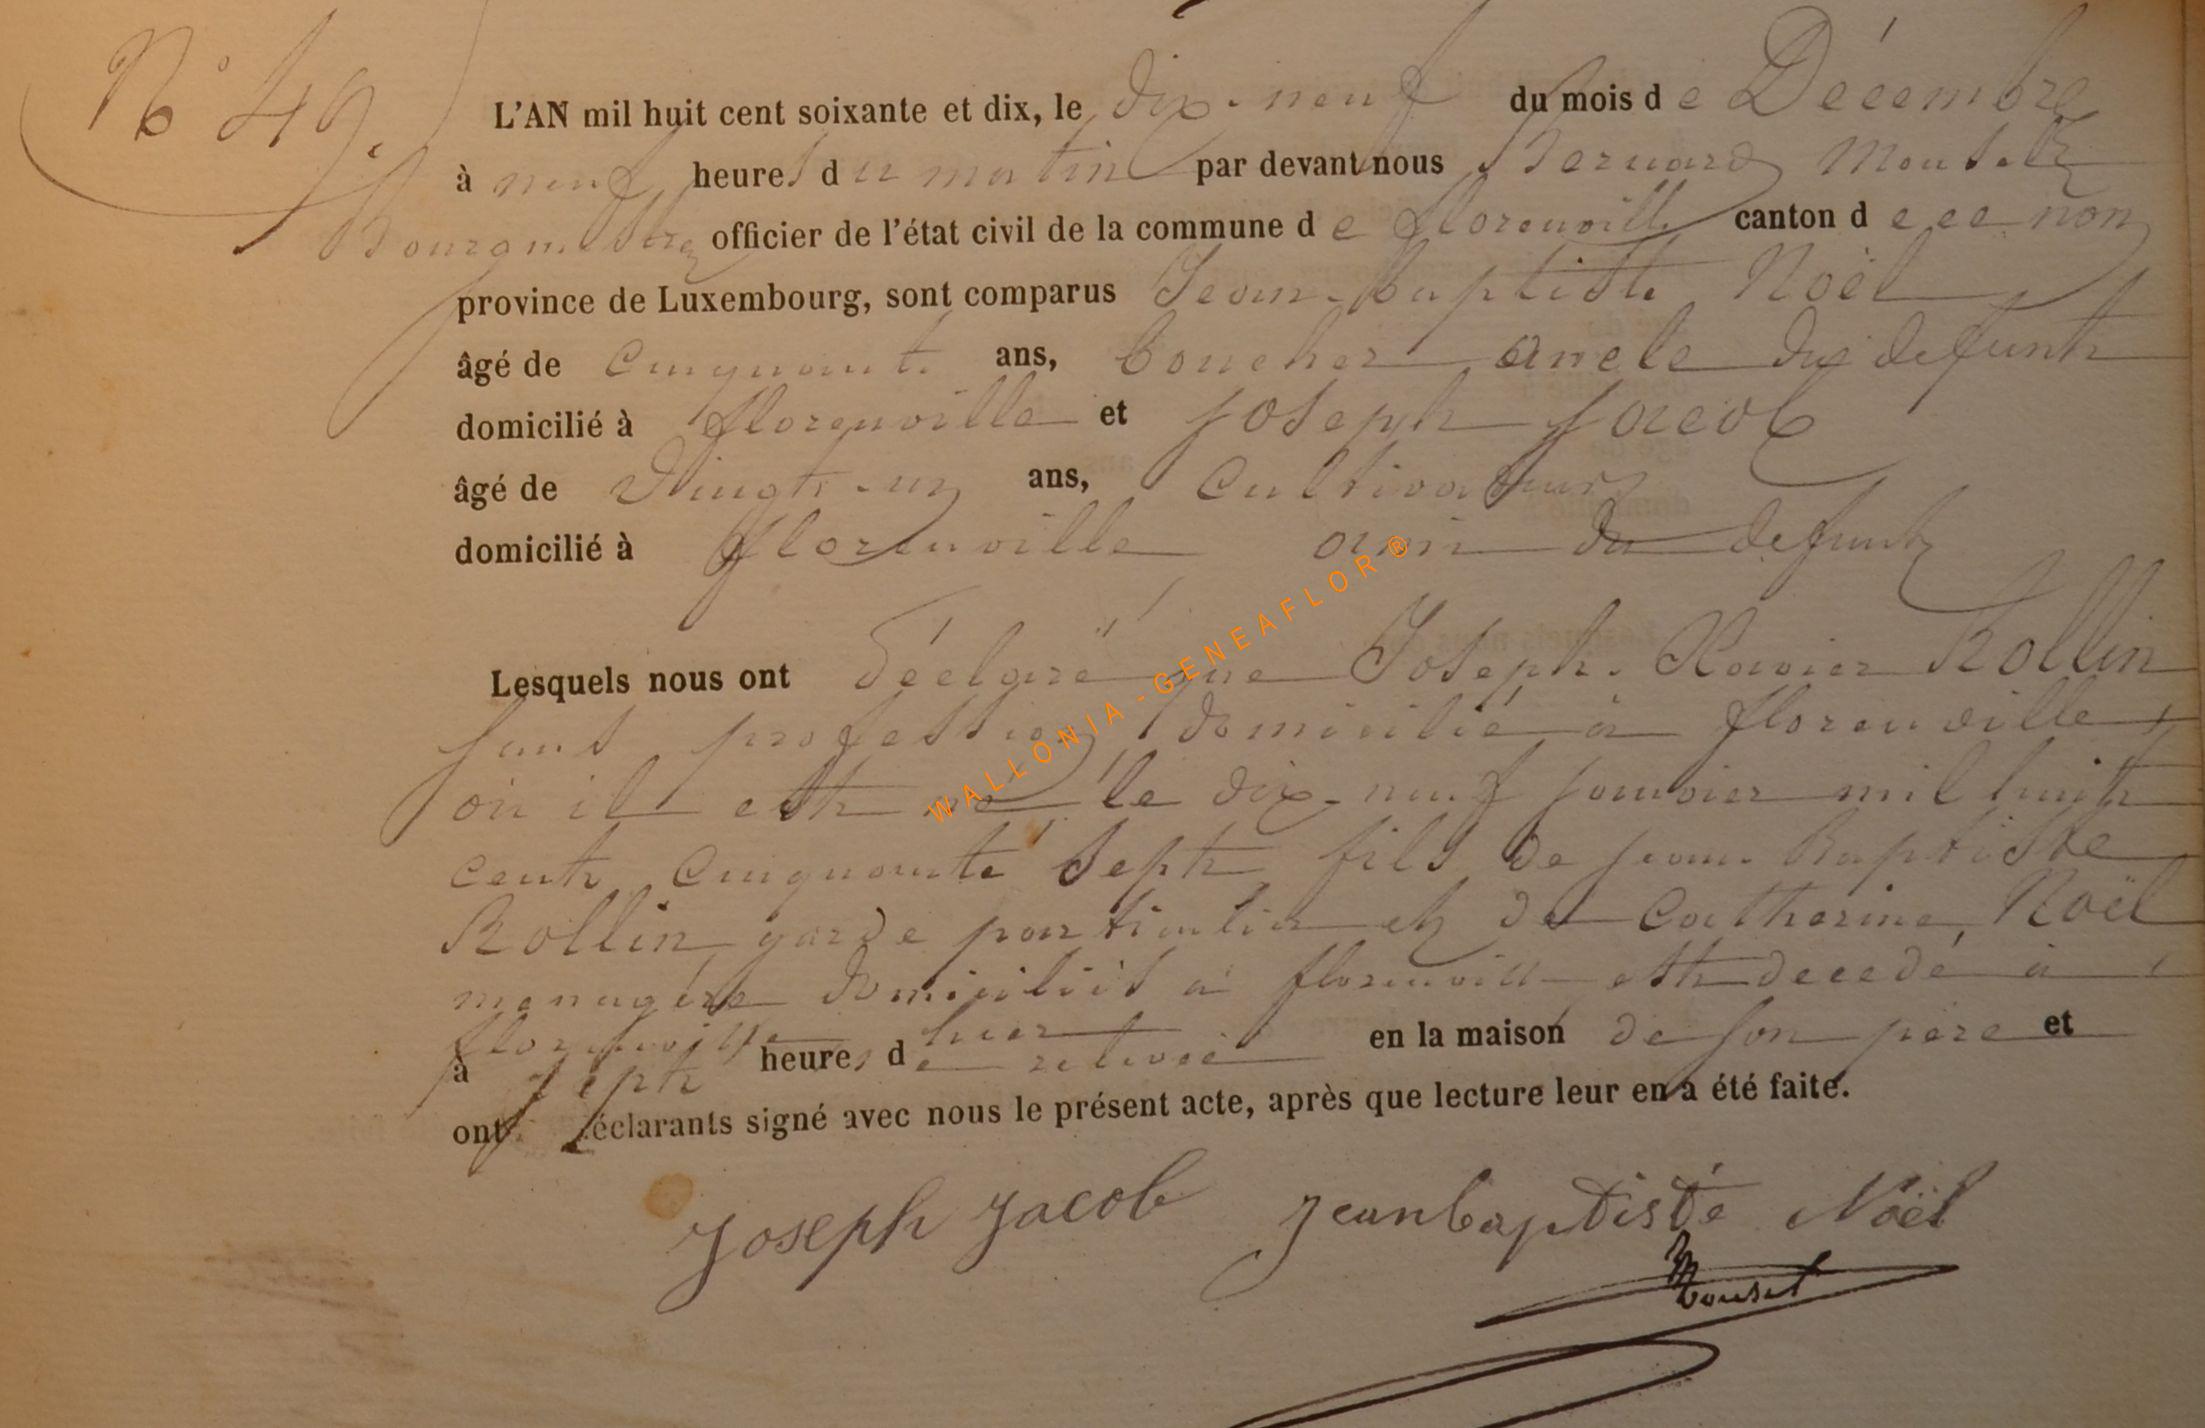 N° 49.
L'AN mil huit cent soixante et dix, le dix-neuf du mois de Décembre
à neuf heures du matin par devant nous Bernard Mousel
Bourgmestre officier de l'état civil de la commune de florenville canton de ce nom
province de Luxembourg, sont comparus Jean-baptiste Noël
âgé de Cinquante ans, boucher oncle du defunt
domicilié à florenville et Joseph Jacob
âgé de Vingt-un ans, Cultivateur
domicilié à florenville ami du defunt
Lesquels nous ont déclaré que Joseph-Xavier Rollin
sans profession domicilié à florenville,
où il est né le dix-neuf janvier mil huit
cent Cinquante Sept fils de jean Baptiste
Rollin garde particulier et de Catherine Noël
menagère domiciliés à florenville est decedé à
florenville hier
à sept heures de relevée en la maison de son père et
ont éclarants signé avec nous le présent acte, après que lecture leur en a été faite.
Joseph Jacob Jeanbaptiste Noël
Mousel
WALLONIA - GENEAFLOR ®